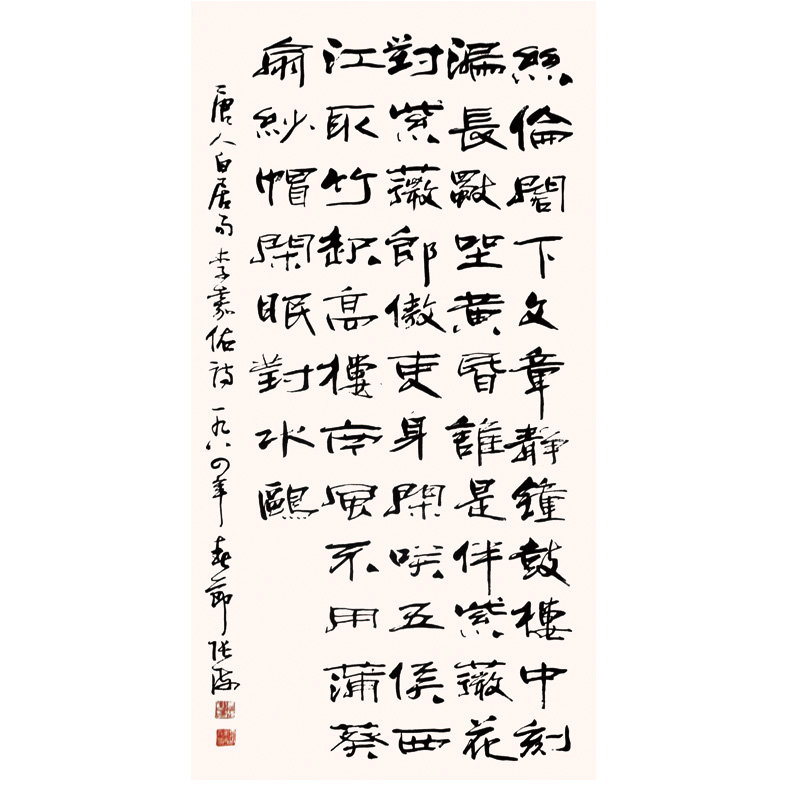 絲倫閣下文章靜鐘鼓樓中刻
漏長獨坐黃昏誰是伴紫薇花
對紫薇郎傲吏身閑咲五侯西
江取竹起高樓南風不用蒲葵
扇紗帽閑眠對水鷗
唐人白居易李嘉佑詩 一九八四年春節 張海